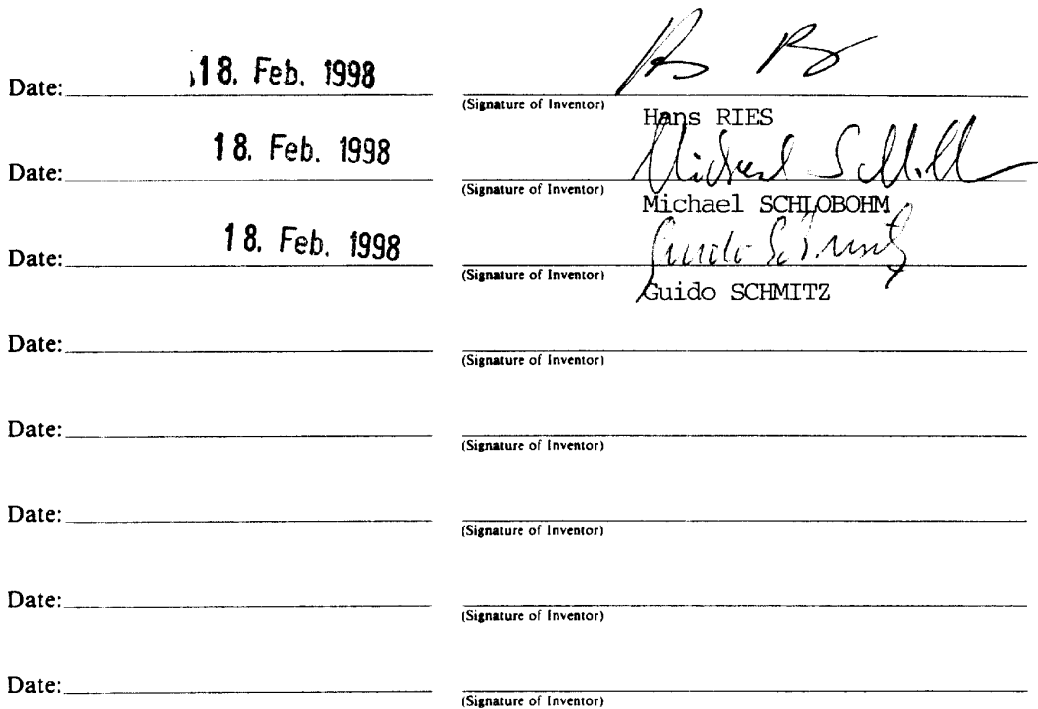 Date: 18. Feb. 1998
(Signature of Inventor)
Hans RIES
Date: 18. Feb. 1998
Michael Schl
(Signature of Inventor)
Michael SCHLOBOHM
Date: 18. Feb. 1998
Guido Schmitz
(Signature of Inventor)
Guido SCHMITZ
Date:
(Signature of Inventor)
Date:
(Signature of Inventor)
Date:
(Signature of Inventor)
Date:
(Signature of Inventor)
Date:
(Signature of Inventor)